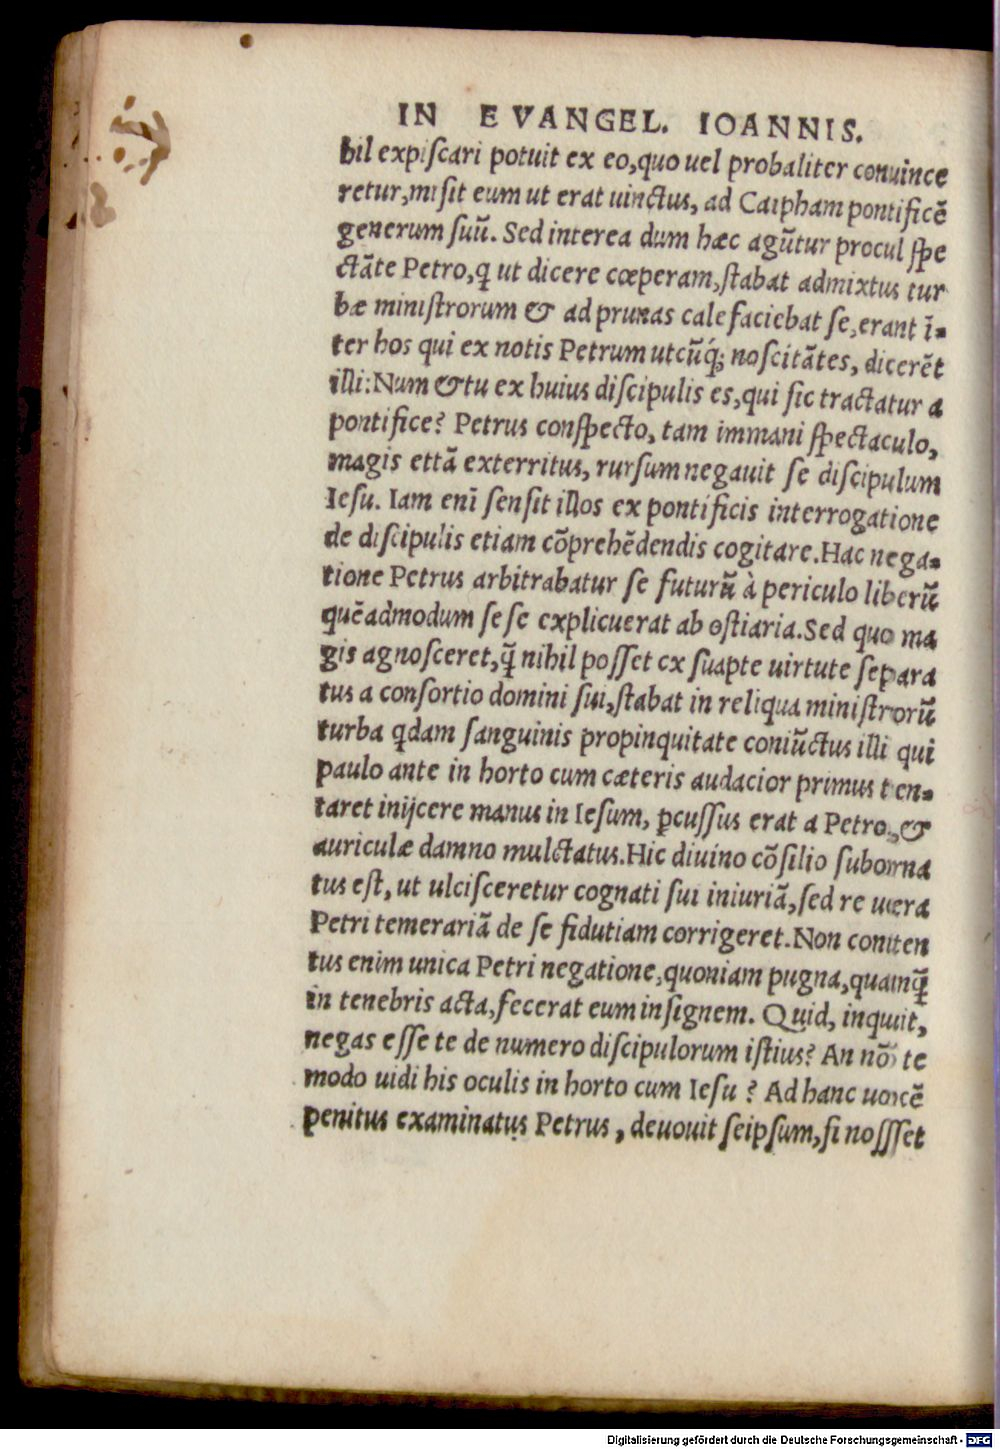 IN EVANGEL. IOANNIS.
hil expiſcari potuit ex eo,quo uel probaliter conuince
retur,miſit eum ut erat uinctus, ad Caipham pontificē
generum ſuū. Sed interea dum hæc agūtur procul ſpe
ctāte Petro,q ut dicere cœperam,ſtabat admixtus tur
bæ miniſtrorum & ad prunas calefaciebat ſe,erant ī-
ter hos qui ex notis Petrum utcūq; noſcitātes, dicerēt
illi:Num & tu ex huius diſcipulis es,qui ſic tractatur a
pontifice? Petrus conſpecto, tam immani ſpectaculo,
magis ettā exterritus, rurſum negauit ſe diſcipulum
Ieſu. Iam enī ſenſit illos ex pontificis interrogatione
de diſcipulis etiam cōprehēdendis cogitare.Hac nega-
tione Petrus arbitrabatur ſe futurū à periculo liberū
quēadmodum ſeſe explicuerat ab oſtiaria.Sed quo ma
gis agnoſceret,q̄ nihil poſſet ex ſuapte uirtute ſepara
tus a conſortio domini ſui,ſtabat in reliqua miniſtrorū
turba qdam ſanguinis propinquitate coniūctus illi qui
paulo ante in horto cum cæteris audacior primus ten-
taret inijcere manus in Ieſum, ꝑcuſſus erat a Petro, &
auriculæ damno mulctatus.Hic diuino cōſilio ſuborna
tus eſt, ut ulciſceretur cognati ſui iniuriā,ſed re uera
Petri temerariā de ſe fidutiam corrigeret.Non conten
tus enim unica Petri negatione,quoniam pugna,quamq̄
in tenebris acta,fecerat eum inſignem. Quid, inquit,
negas eſſe te de numero diſcipulorum iſtius? An nō te
modo uidi his oculis in horto cum Ieſu ? Ad hanc uocē
penitus examinatus Petrus, deuouit ſeipſum,ſi noſſſet
Digitalisierung gefördert durch die Deutsche Forschungsgemeinschaft - DFG